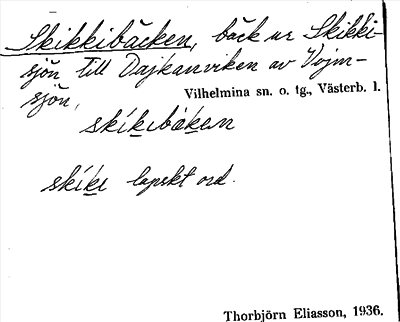 Skikkibäcken, bäck ur Skikki-
sjön till Dajkanviken av Vojm-
sjön,
Vilhelmina sn. o. tg., Västerb. l.
skíkibäken
skíki lapskt ord.
Thorbjörn Eliasson, 1936.